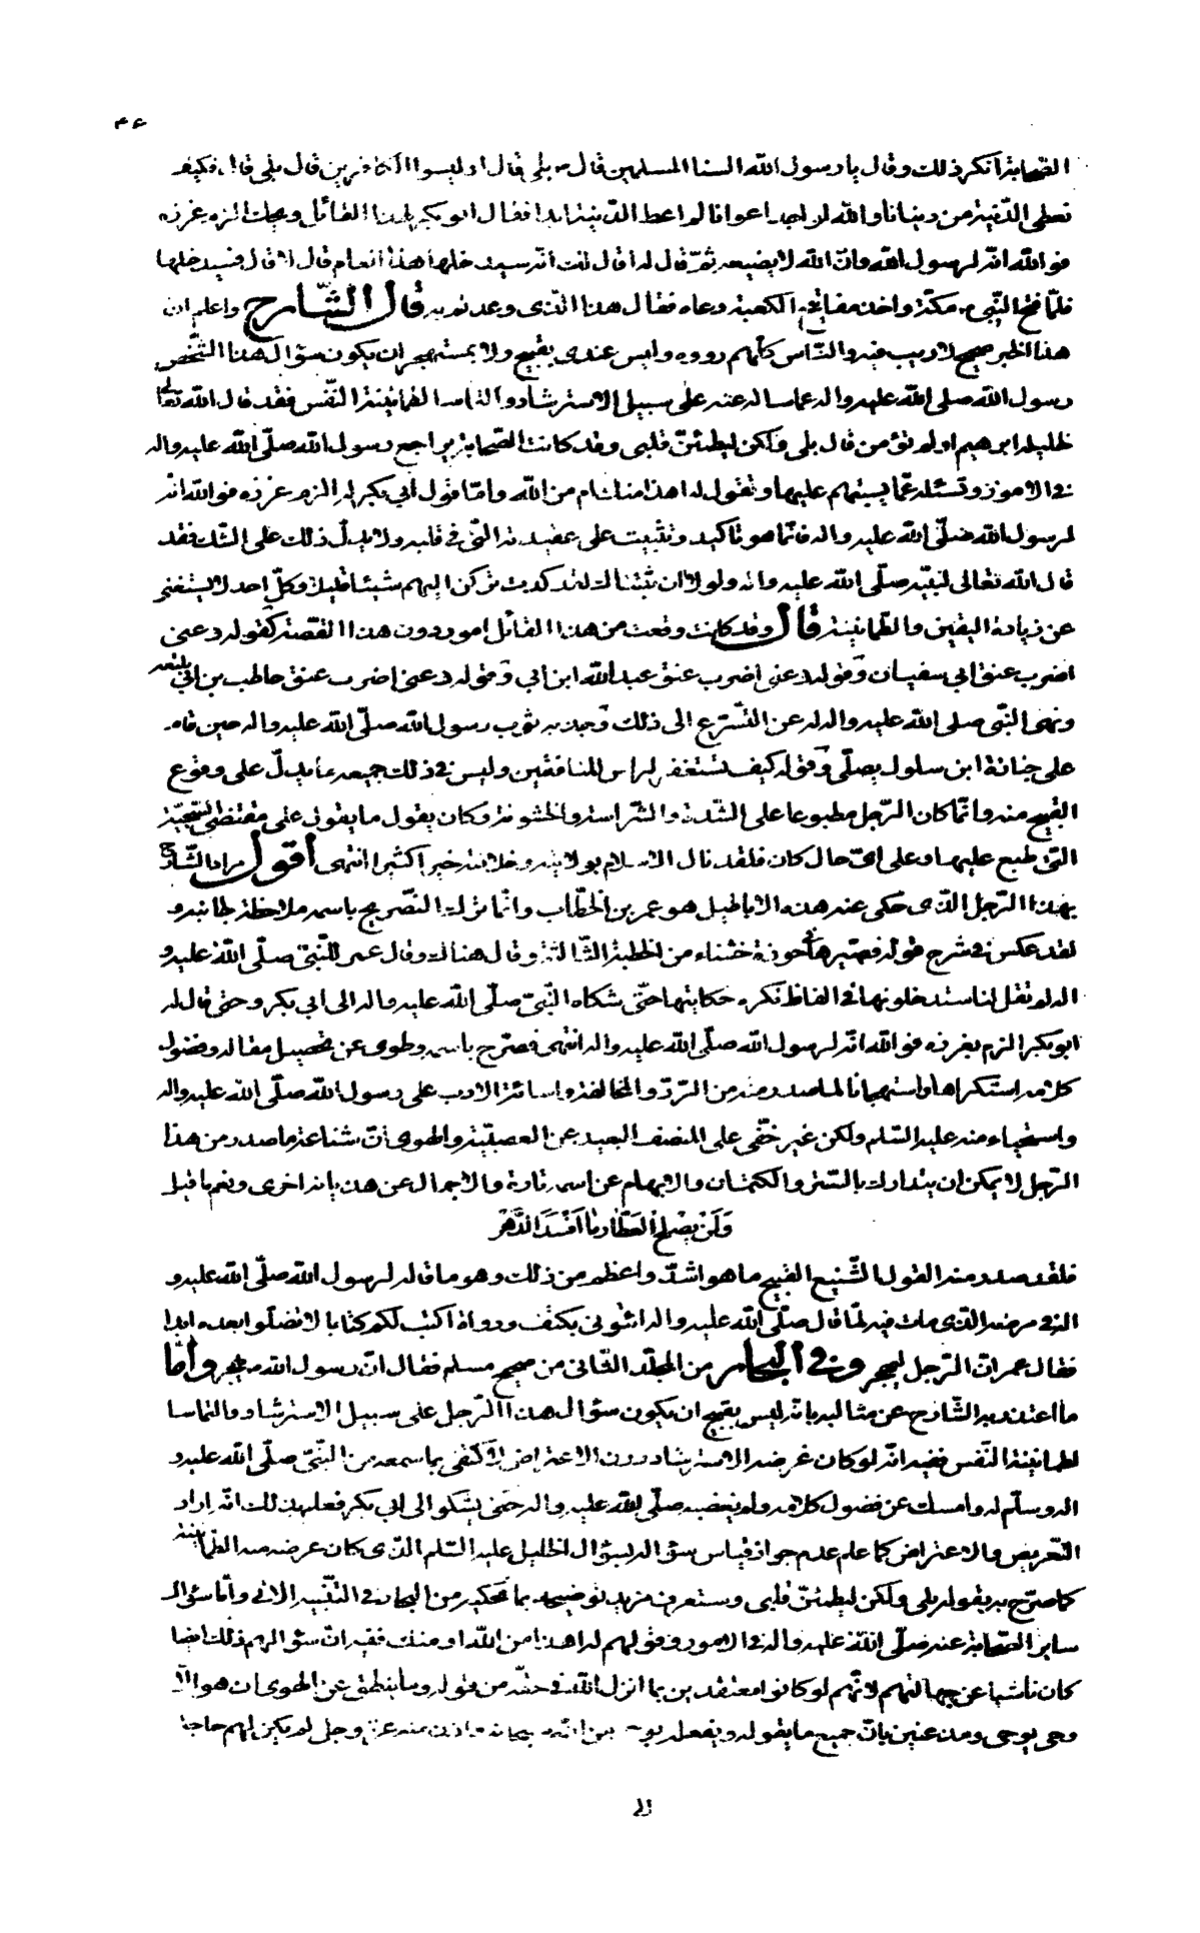 ۴۶
الصحابة انكر ذلك وقال يا رسول الله السنا المسلمين قال بلى قال اوليسوا الكافرين قال بلى قال فكيف
نعطى الدّنية من ديننا والله لو اجد اعوانا لم اعط الدّنية ابدا فقال ابو بكر لهذا القائل ويحك الزم غرزه
فوالله انّه لرسول الله وانّ الله لا يضيعه ثمّ قال له اقال لك انّه سيدخلها هذا العام قال لا قال فسيدخلها
فلمّا فتح النّبى ص مكّة واخذ مفاتيح الكعبة دعاه فقال هذا الذى وعدتم به قال الشّارح واعلم ان
هذا الخبر صحيح لا ريب فيه والنّاس كلّهم رووه وليس عندى بقبيح ولا بمستهجن ان يكون سؤال هذا الشّخص
رسول الله صلى الله عليه واله عما ساله عنه على سبيل الاسترشاد والتماسا لطمانينة النّفس فقد قال الله تعالى
لخليله ابرهيم اولم تؤمن قال بلى ولكن ليطمئنّ قلبى وقد كانت الصّحابة يراجع رسول الله صلّى الله عليه واله
فى الامور وتسئله عمّا يستبهم عليها وتقول له اهذا منك ام من الله وامّا قول ابى بكر له الزم غرزه فوالله انّه
لرسول الله صلّى الله عليه واله فانّما هو تاكيد وتثبيت على عقيدته الّتى فى قلبه ولا يدلّ ذلك على الشّك فقد
قال الله تعالى لنبيّه صلّى الله عليه واله ولولا ان ثبّتناك لقد كدت تركن اليهم شيئا قليلا وكلّ احد لا يستغنى
عن زيادة اليقين والطمانينة قال وقد كانت وقعت من هذا القائل امور دون هذا القصّة كقوله دعنى
اضرب عنق ابى سفيان وقوله دعنى اضرب عنق عبد الله ابن ابى وقوله دعنى اضرب عنق حاطب بن ابى بلتعه
ونهى النّبى صلى الله عليه واله له عن التّسرّع الى ذلك وجذبه ثوب رسول الله صلّى الله عليه واله حين قام
على جنازة ابن سلول يصلّى وقوله كيف تستغفر لراس المنافقين وليس فى ذلك جميعه ما يدلّ على وقوع
القبيح منه وانّما كان الرّجل مطبوعا على الشّدة والشّراسة والخشونة وكان يقول ما يقول على مقتضى السّجيّة
التى طبع عليها وعلى اىّ حال كان فلقد نال الاسلام بولايته وخلافته خيرا كثيرا انتهى اقول مراد الشّارح
بهذا الرّجل الّذى حكى عنه هذه الاباطيل هو عمر بن الخطّاب وانّما ترك التّصريح باسمه ملاحظة لجانبه و
لقد عكس فى شرح قوله فصيّرها فى حوزة خشناء من الخطبة الثّالثة وقال هنالك وقال عمر للنّبىّ صلّى الله عليه و
اله الم تقل لنا ستدخلونها فى الفاظ نكره حكايتها حتّى شكاه النّبىّ صلّى الله عليه واله الى ابى بكر وحتى قال له
ابو بكر الزم بغرزه فوالله انّه لرسول الله صلّى الله عليه واله انتهى فصرّح باسمه وطوى عن تحصيل مقاله وفضول
كلامه استكراها واستهجانا لما صدر منه من الرّدّ والمخالفة واسائة الادب على رسول الله صلّى الله عليه واله
واستحياء منه عليه السّلم ولكن غير خفّى على المنصف البعيد عن العصبيّة والهوى انّ شناعة ما صدر من هذا
الرّجل لا يمكن ان يتدارك بالسّتر والكتمان والابهام عن اسمه تارة والاجمال عن هذيانه اخرى ونعم ما قيل
وَلَنْ يُصْلِحَ الْعَطّارُ ما اَفْسَدَ الدَّهْرُ
فلقد صدر منه القول الشّنيع القبيح ما هو اشدّ واعظم من ذلك وهو ما قاله لرسول الله صلّى الله عليه و
اله فى مرضه الذى مات فيه لمّا قال صلّى الله عليه واله ائتونى بكتف ودواة اكتب لكم كتابا لا تضلّوا بعده ابدا
فقال عمر انّ الرّجل ليهجر وفى البحار من المجلّد الثّانى من صحيح مسلم فقال انّ رسول الله ص يهجر وامّا
ما اعتذر به الشّارح عن مثالبه بانّه ليس بقبيح ان يكون سؤال هذا الرّجل على سبيل الاسترشاد والتماسا
لطمانينة النّفس ففيه انّه لو كان غرضه الاسترشاد دون الاعتراض لاكتفى بما سمعه من النّبىّ صلّى الله عليه و
اله وسلّم له وامسك عن فضول كلامه ولم يغضبه صلّى الله عليه واله حتى يشكو الى ابى بكر فعلم بذلك انّه اراد
التّعريض والاعتراض كما علم عدم جواز قياس سؤاله لسؤال الخليل عليه السّلم الّذى كان غرضه منه الطمانينة
كما صرّح به بقوله بلى ولكن ليطمئنّ قلبى وستعرف مزيد توضيحه بما نحكيه من البحار فى التّنبيه الاتى وامّا سؤال
ساير الصّحابة عنه صلّى الله عليه واله فى الامور وقولهم له اهذا من الله او منك ففيه انّ سؤالهم ذلك ايضا
كان ناشيا عن جهالتهم لانّهم لو كانوا معتقدين بما انزل الله فى حقّه من قوله وما ينطق عن الهوى ان هو الّا
وحى يوحى ومذعنين بانّ جميع ما يقوله ويفعله بوحى من الله سبحانه واذن منه عزّ وجل لم يكن لهم حاجة
الى